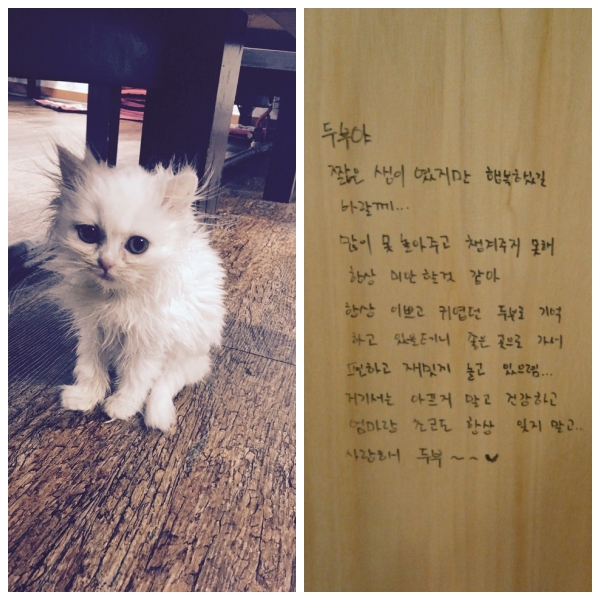 두부야
짧은 생이 였지만 행복했길
바랄께...
많이 못 놀아주고 챙겨주지 못해
항상 미안할것 같아
항상 이쁘고 귀엽던 두부로 기억
하고 있을테니 좋은 곳으로 가서
편하고 재밌게 놀고 있으렴...
거기서는 아프지 말고 건강하고
엄마랑 초코도 항상 잊지 말고..
사랑해 두부 ~ ~ ♥